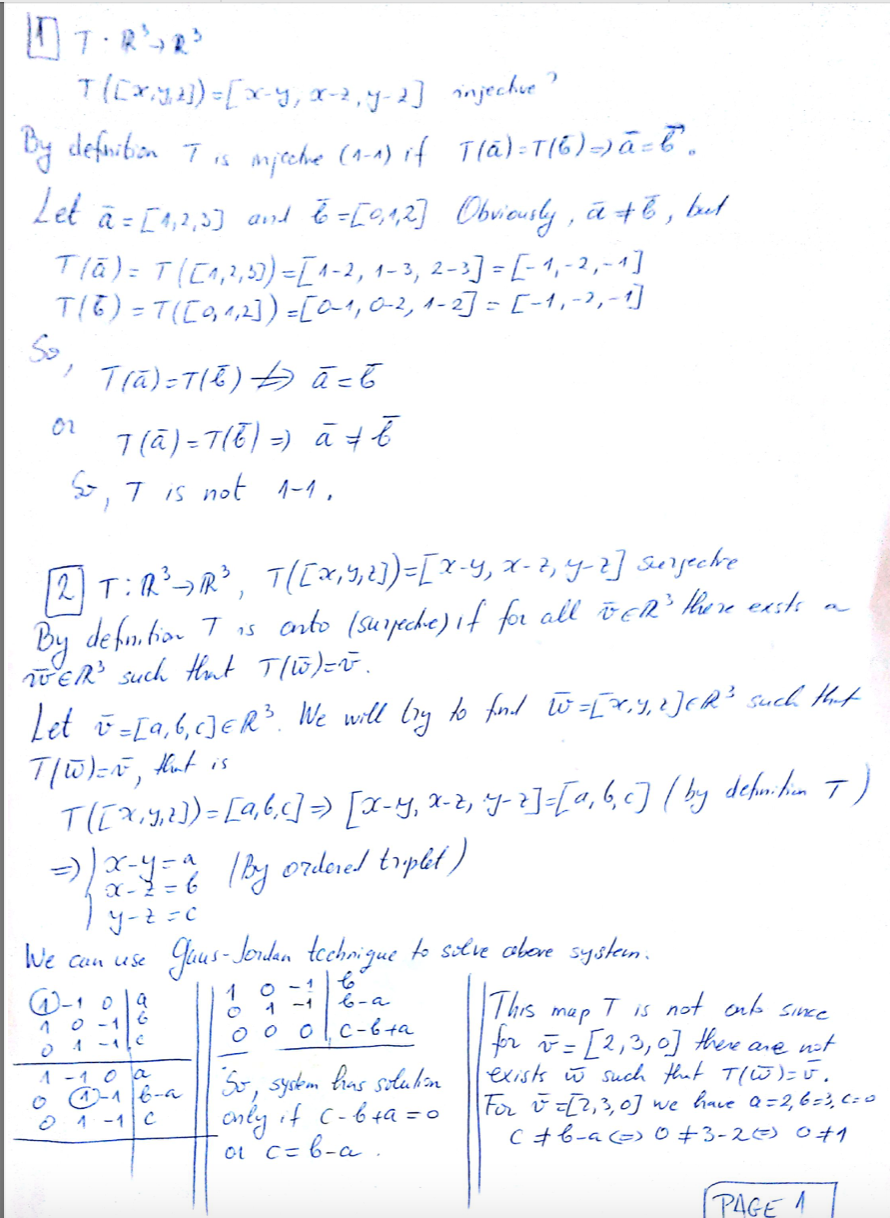 1 T: ℝ³→ℝ³
T([x,y,z])=[x-y, x-z, y-z] injective?
By definition T is injective (1-1) if T(ā)=T(b̄)⇒ā=b̄.
Let ā=[1,2,3] and b̄=[0,1,2] Obviously, ā≠b̄, but
T(ā)=T([1,2,3])=[1-2, 1-3, 2-3]=[-1,-2,-1]
T(b̄)=T([0,1,2])=[0-1, 0-2, 1-2]=[-1,-2,-1]
So,
T(ā)=T(b̄)⇏ā=b̄
or
T(ā)=T(b̄)⇒ā≠b̄
So, T is not 1-1.
2 T:ℝ³→ℝ³, T([x,y,z])=[x-y, x-z, y-z] surjective
By definition T is onto (surjective) if for all v̄∈ℝ³ there exists a
w̄∈ℝ³ such that T(w̄)=v̄.
Let v̄=[a,b,c]∈ℝ³. We will try to find w̄=[x,y,z]∈ℝ³ such that
T(w̄)=v̄, that is
T([x,y,z])=[a,b,c]⇒[x-y, x-z, y-z]=[a,b,c] (by definition T)
⇒{x-y=a (By ordered triplet)
x-z=b
y-z=c
We can use Gaus-Jordan technique to solve above system.
1 -1 0 | a
1 0 -1 | b
0 1 -1 | c
1 -1 0 | a
0 1 -1 | b-a
0 1 -1 | c
1 0 -1 | b
0 1 -1 | b-a
0 0 0 | c-b+a
So, system has solution
only if c-b+a=0
or c=b-a.
This map T is not onto since
for v̄=[2,3,0] there are not
exists w̄ such that T(w̄)=v̄.
For v̄=[2,3,0] we have a=2, b=3, c=0
c≠b-a⇔0≠3-2⇔0≠1
PAGE 1